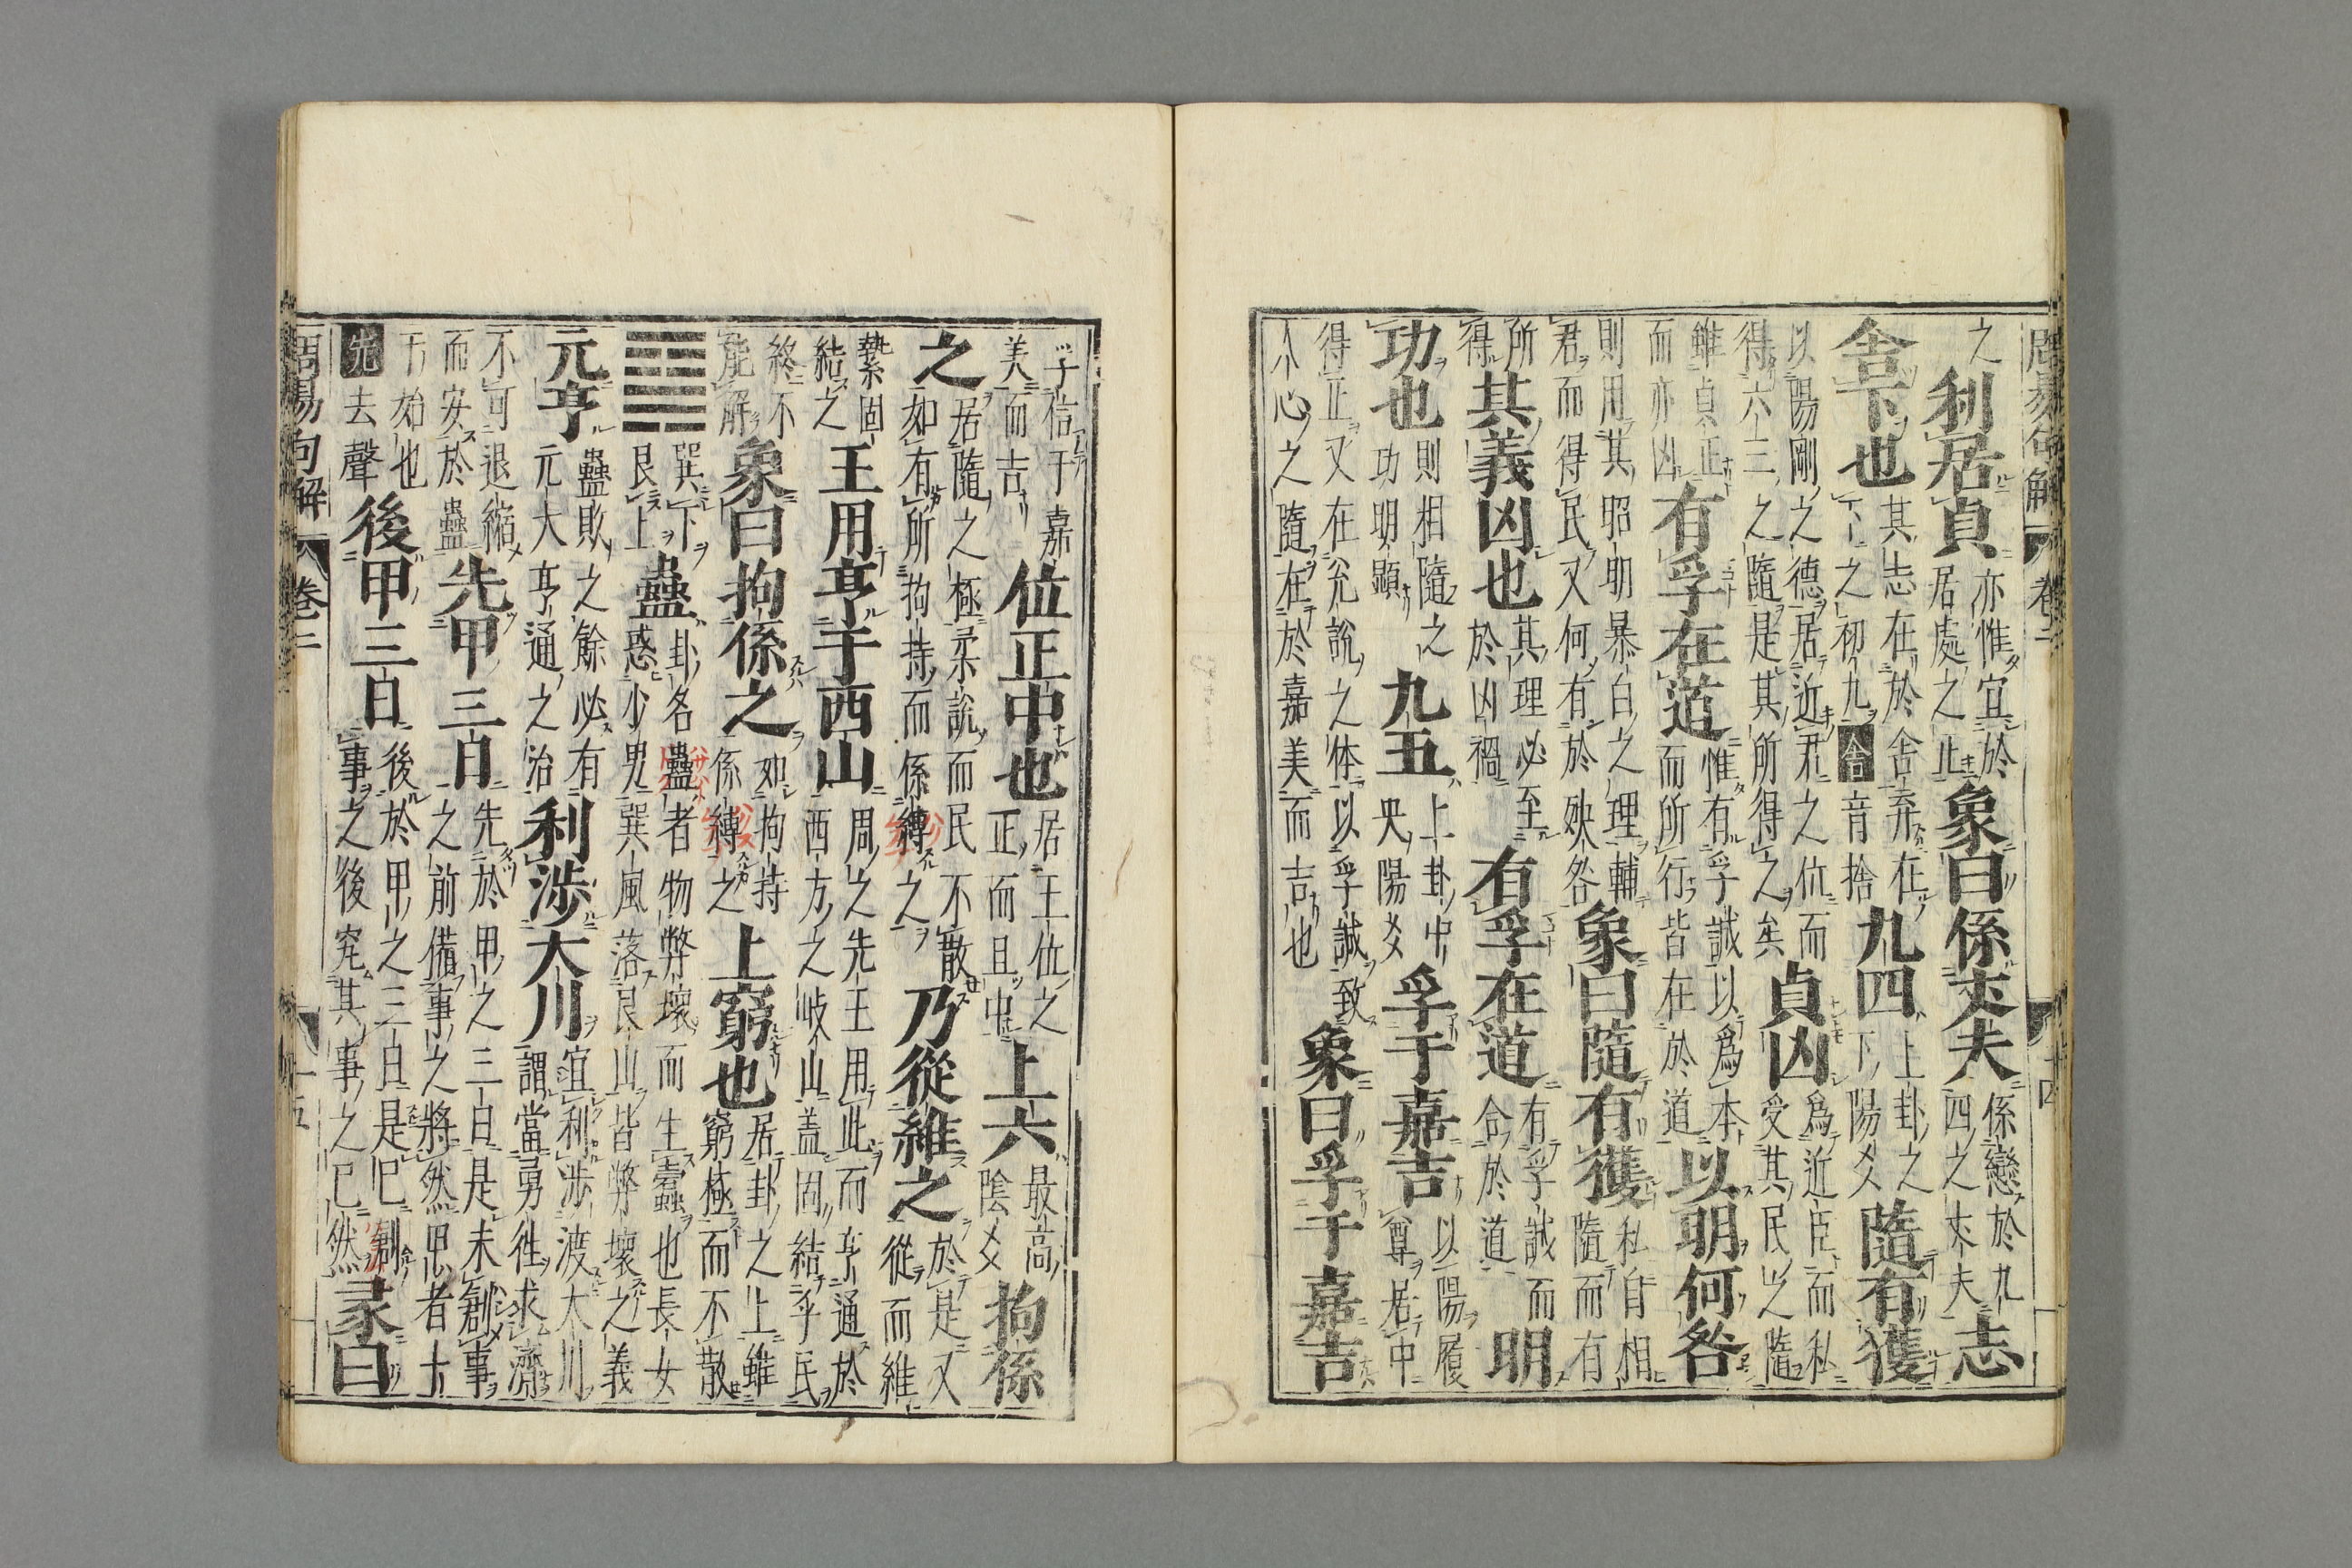 周易句解 卷二 十四
之利居貞亦惟宜於居處之止象曰係丈夫係戀於九四之丈夫志
舍下也其志在於舍弃在下之初九舍音捨九四上卦之下陽爻隨有獲
以陽剛之德居近君之位而得六三之隨是其所得之矣貞凶爲近臣而私受其民之隨
雖貞正而亦凶有孚在道惟有孚誠以爲本而所行皆在於道以明何咎
則用其昭明暴白之理輔君而得民又何有於殃咎象曰隨有獲私自相隨而有
所得其義凶也其理必至於凶禍有孚在道有孚誠而合於道明
功也則相隨之功明顯九五上卦中央陽爻孚于嘉吉以陽履尊居中
得正又在兌說之体以孚誠致人心之隨在於嘉美而吉也象曰孚于嘉吉
孚信于嘉美而吉位正中也居王位之正而且中上六最高陰爻拘係
之居隨之極柔說而民不散如有所拘持而係縛之乃從維之於是又從而維
縶固結之王用亨于西山周之先王用此而亨通於西方之岐山盖固結乎民
終不能解象曰拘係之如拘持係縛之上窮也居卦之上雖窮極而不散
䷑巽下艮上蠱卦名蠱者物弊壞而生蠹也長女惑少男巽風落艮山皆弊壞之義
元亨蠱敗之餘必有元大亨通之治利涉大川宜利涉渡大川謂當勇徃求濟
不可退縮而安於蠱先甲三日先於甲之三日是未創事之前備事之將然甲者十
干始也先去聲後甲三日後於甲之三日是已創事之後究其事之已然彖曰
周易句解 卷二 十五